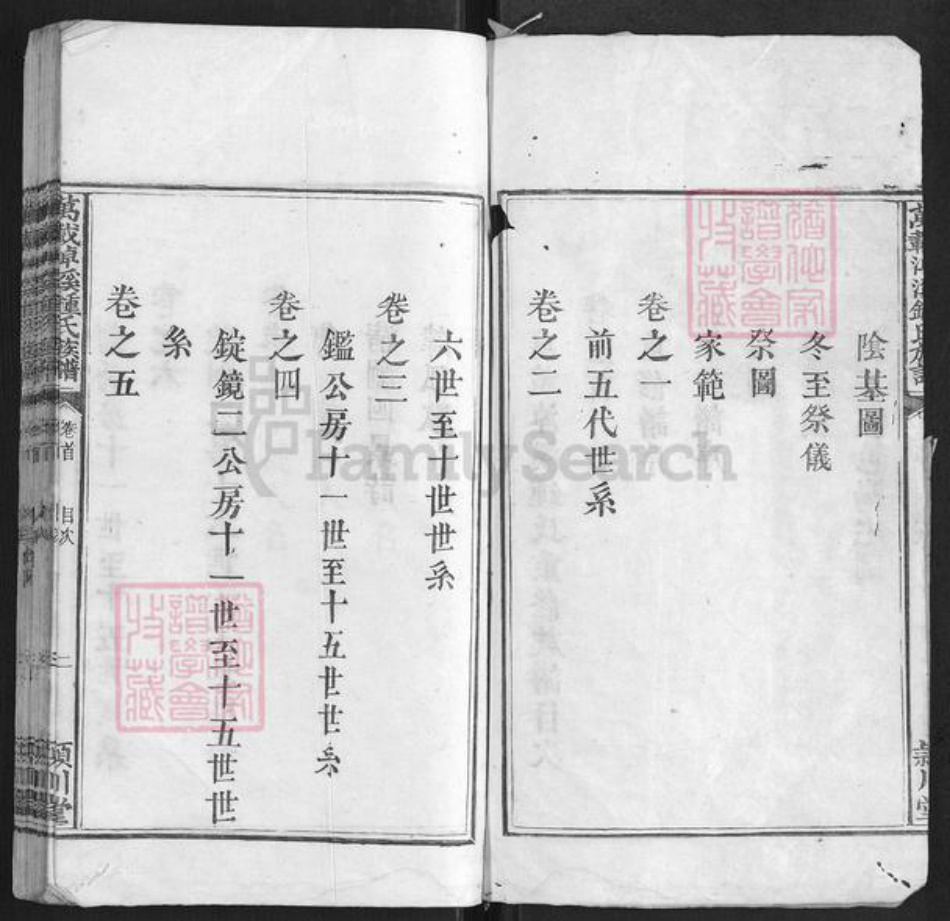 陰基圖
冬至祭儀
祭圖
家範
卷之一
前五代世系
卷之二
六世至十世世系
卷之三
鑑公房十一世至十五世世系
卷之四
錠鏡二公房十一世至十五世世
系
卷之五
萬載 溪鍾氏族譜 卷首 目次 二 潁川堂
譜學會
收藏
FamilySearch